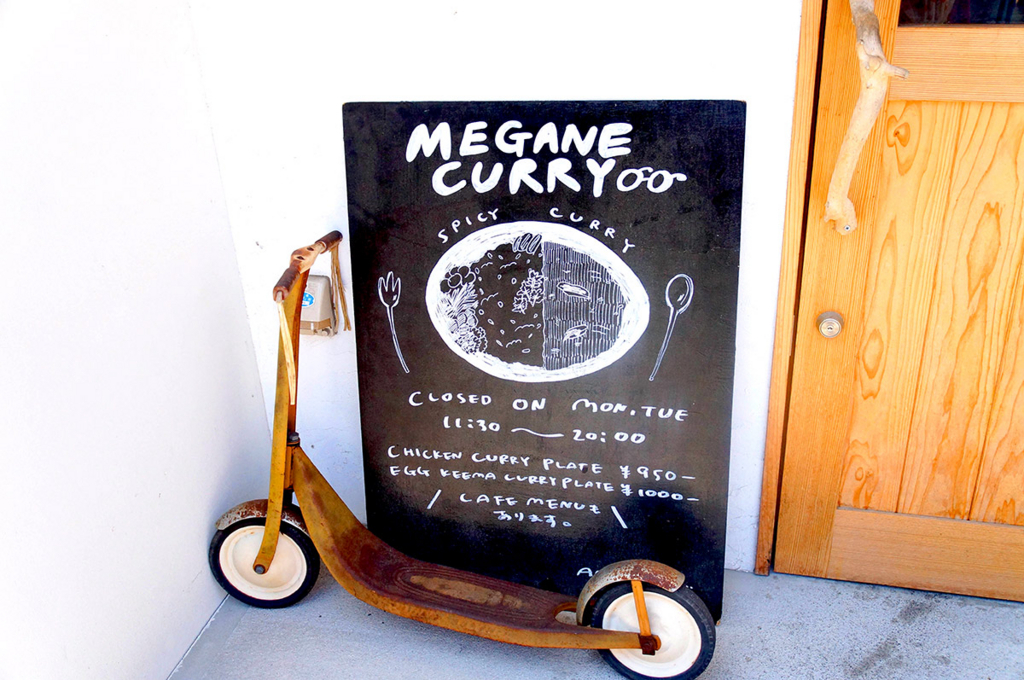 MEGANE
CURRY
SPICY CURRY
CLOSED ON MON. TUE
11:30 〜 20:00
CHICKEN CURRY PLATE ¥950-
EGG KEEMA CURRY PLATE ¥1000-
\ CAFE MENUも /
あります。